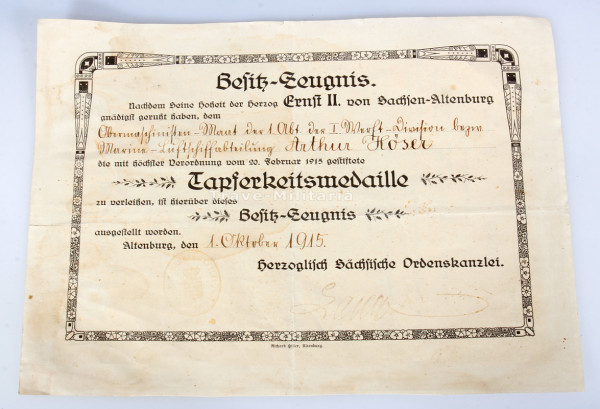 Besitz-Zeugnis.
Nachdem Seine Hoheit der Herzog Ernst II. von Sachsen-Altenburg
gnädigst geruht haben, dem
Obermaschinisten-Maat der 1. Abt. der I. Werft-Division bezw.
Marine-Luftschiffabteilung Arthur Köser
die mit höchster Verordnung vom 20. Februar 1915 gestiftete
Tapferkeitsmedaille
zu verleihen, ist hierüber dieses
Besitz-Zeugnis
ausgestellt worden.
Altenburg, den 1. Oktober 1915.
Herzoglich Sächsische Ordenskanzlei.
Militaria
Altenburg.